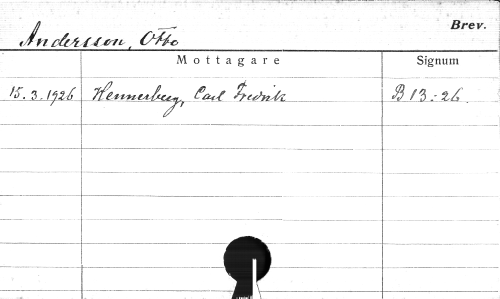 Brev.
Andersson, Otto
Mottagare Signum
15.3.1926 Hennerberg, Carl Fredrik B 13:26.